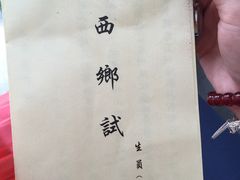 西鄉試
生員（